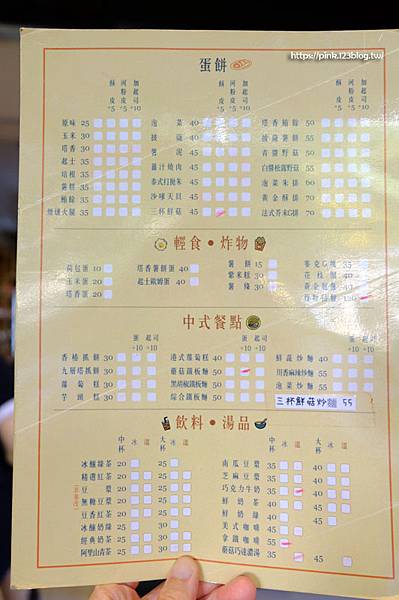 https://pink.123blog.tw/
蛋餅
酥皮+5 河粉皮+5 加起司+10
酥皮+5 河粉皮+5 加起司+10
酥皮+5 河粉皮+5 加起司+10
原味 25
玉米 30
塔香 30
起士 35
培根 35
薯餅 35
鮪餘 35
煙燻火腿 35
泡菜 40
披薩 40
薯泥 45
薑汁燒肉 45
泰式打拋朱 45
沙嗲天貝 45
三杯鮮菇 45
塔香鮪餘 50
披薩薯餅 50
青醬野菇 50
白醬松露野菇 55
泡菜朱排 60
黃金酥排 60
法式芥末G排 70
輕食・炸物
荷包蛋 10
玉米蛋 20
塔香蛋 20
塔香薯餅蛋 40
起士歐姆蛋 40
薯餅 15
紫米糕 30
薯條 30
中式餐點
蛋+10 起司+10
蛋+10 起司+10
蛋+10 起司+10
香椿抓餅 30
九層塔抓餅 30
蘿蔔糕 30
芋頭糕 35
港式蘿蔔糕 40
蘑菇鐵板麵 50
黑胡椒鐵板麵 50
綜合鐵板麵 50
鮮蔬炒麵 50
川香麻辣炒麵 50
泡菜炒麵 50
三杯鮮菇炒麵 55
飲料・湯品
中杯 冰 溫 大杯 冰 溫
中杯 冰 溫 大杯 冰 溫
冰釀綠茶 20 25
精選紅茶 20 25
豆漿 20 25
無糖豆漿 20 25
豆香紅茶 20 25
冰釀奶綠 25 30
經典奶茶 25 30
阿里山青茶 25 30
南瓜豆漿 35 40
芝麻豆漿 35 40
巧克力牛奶 35 40
鮮奶茶 35 40
鮮奶綠 35 40
美式咖啡 35 45
拿鐵咖啡 45 55
蘑菇巧達濃湯 35 45